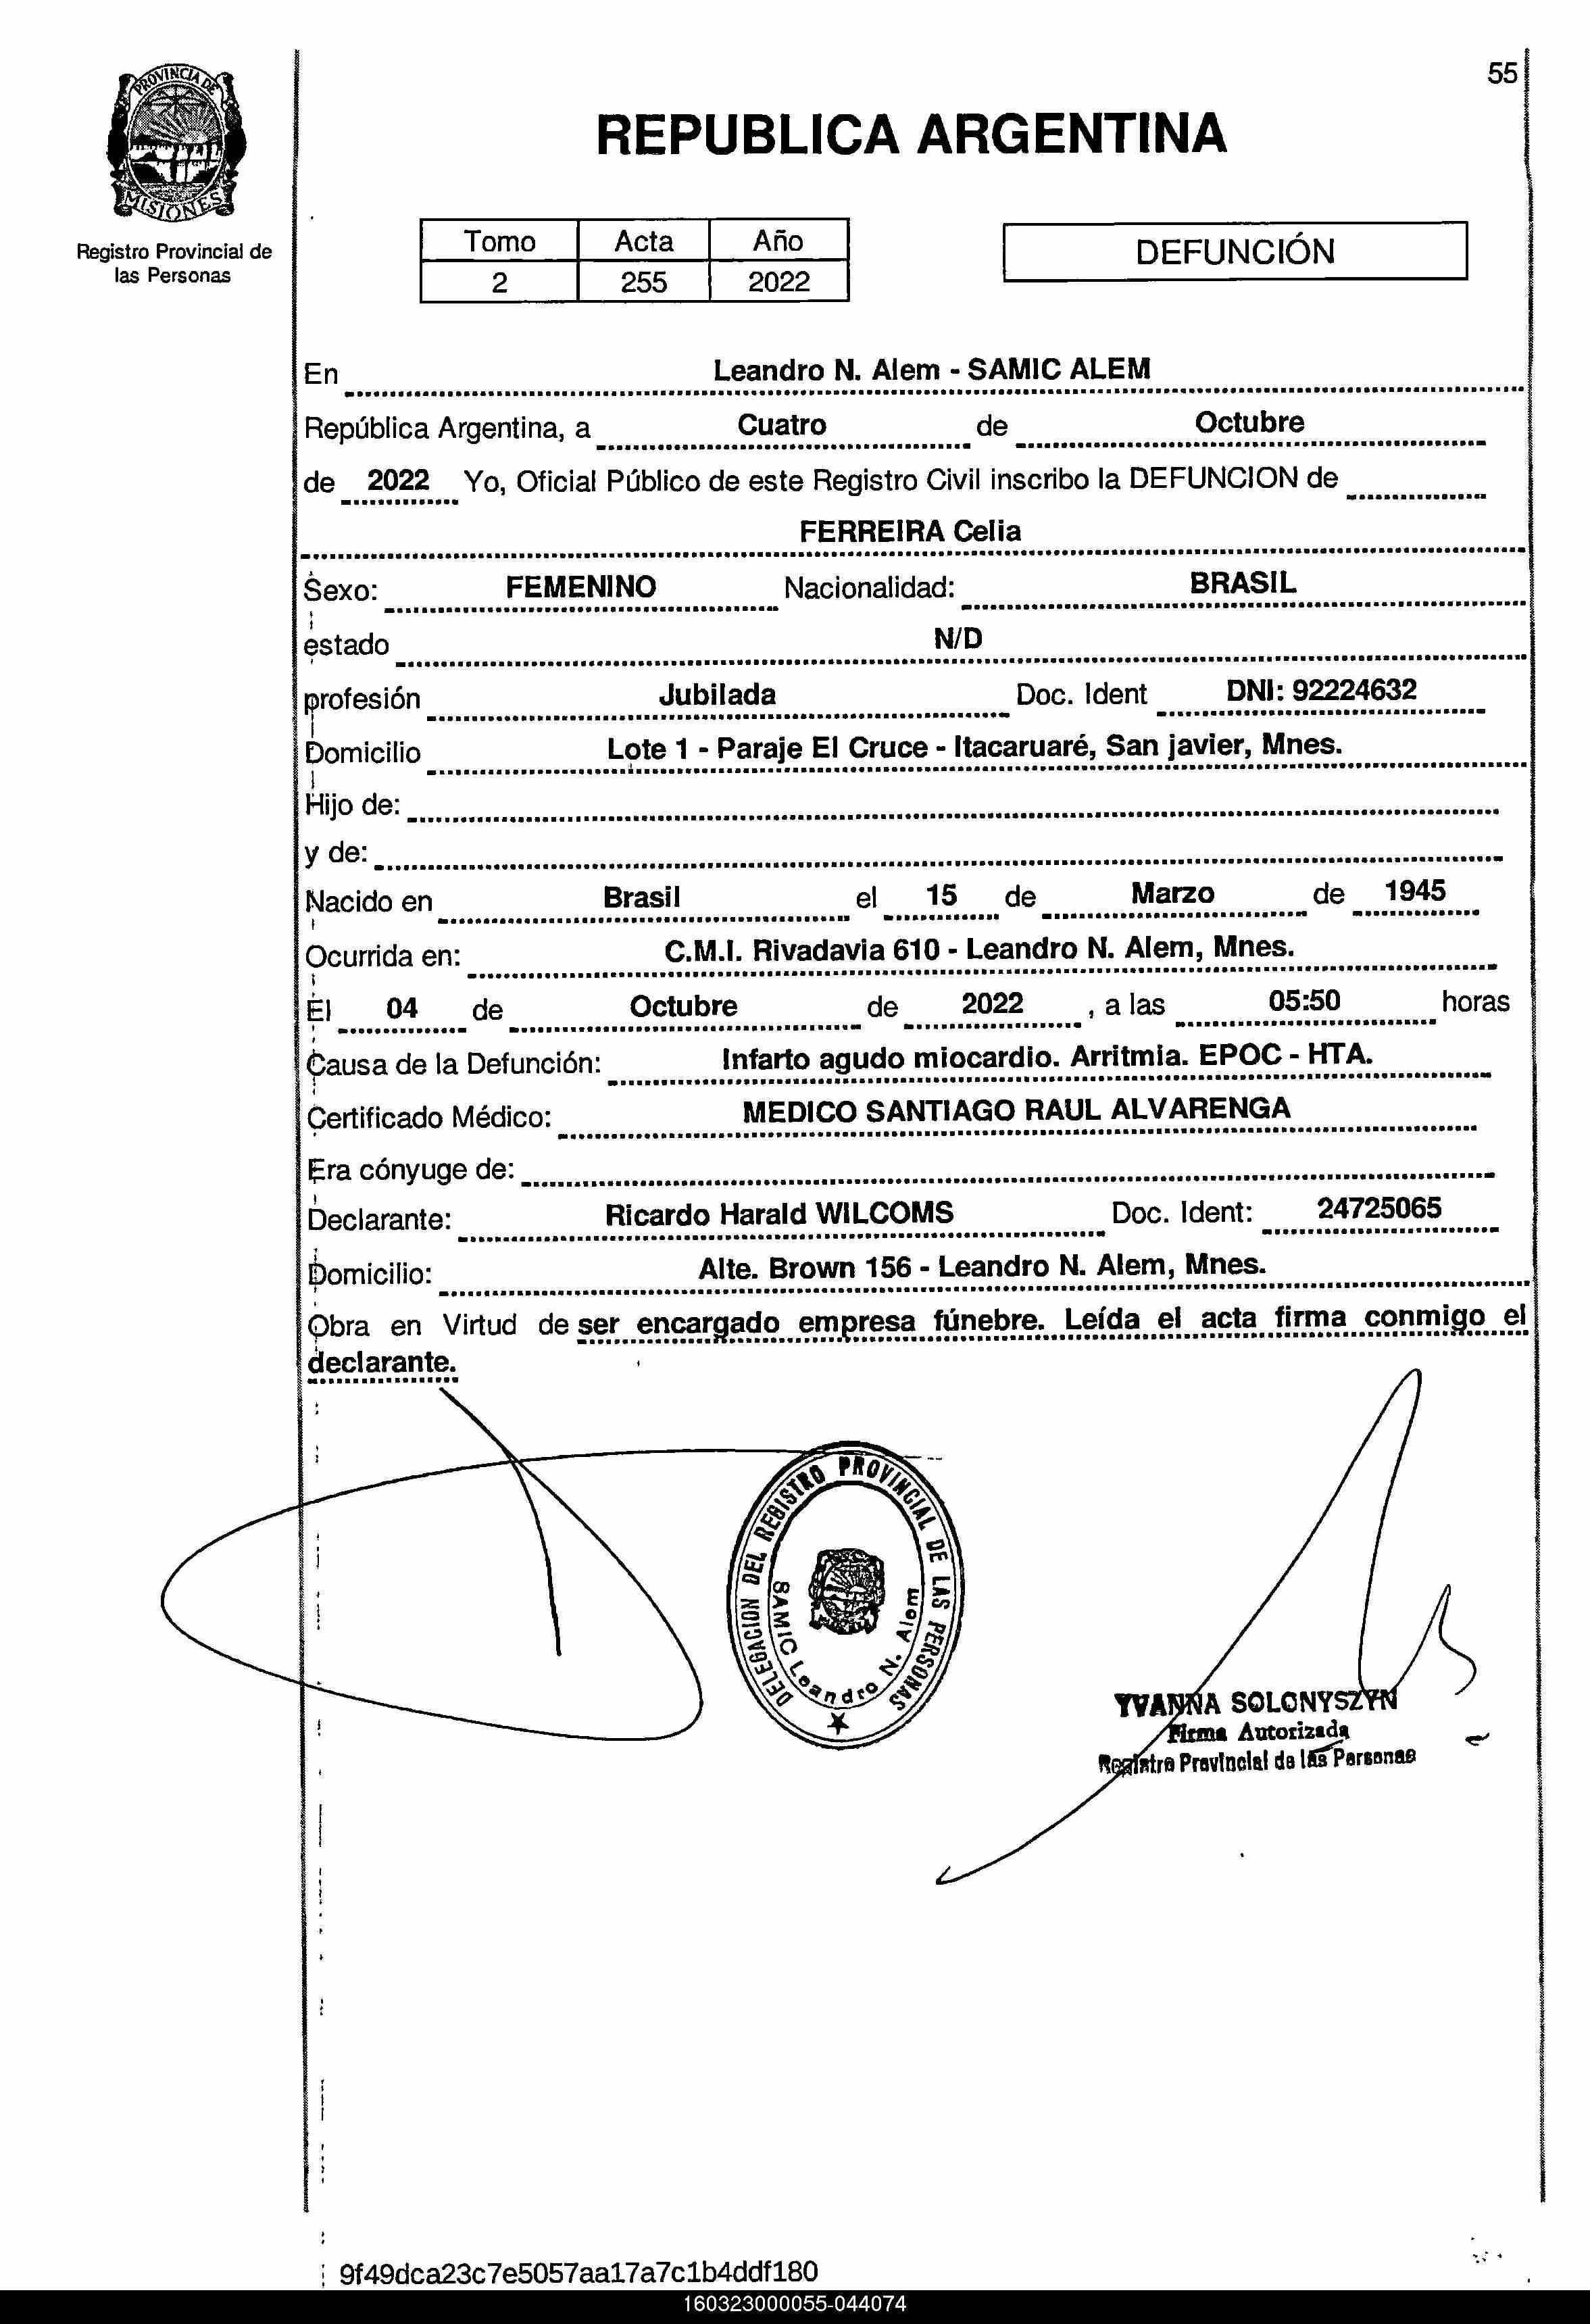 55
PROVINCIA DE
MISIONES
Registro Provincial de
las Personas
REPUBLICA ARGENTINA
Tomo Acta Año
2 255 2022
DEFUNCIÓN
En Leandro N. Alem - SAMIC ALEM
República Argentina, a Cuatro de Octubre
de 2022 Yo, Oficial Público de este Registro Civil inscribo la DEFUNCION de
FERREIRA Celia
Sexo: FEMENINO Nacionalidad: BRASIL
estado N/D
profesión Jubilada Doc. Ident DNI: 92224632
Domicilio Lote 1 - Paraje El Cruce - Itacaruaré, San javier, Mnes.
Hijo de:
y de:
Nacido en Brasil el 15 de Marzo de 1945
Ocurrida en: C.M.I. Rivadavia 610 - Leandro N. Alem, Mnes.
El 04 de Octubre de 2022 , a las 05:50 horas
Causa de la Defunción: Infarto agudo miocardio. Arritmia. EPOC - HTA.
Certificado Médico: MEDICO SANTIAGO RAUL ALVARENGA
Era cónyuge de:
Declarante: Ricardo Harald WILCOMS Doc. Ident: 24725065
Domicilio: Alte. Brown 156 - Leandro N. Alem, Mnes.
Obra en Virtud de ser encargado empresa fúnebre. Leída el acta firma conmigo el
declarante.
DELEGACION DEL REGISTRO PROVINCIAL DE LAS PERSONAS
SAMIC Leandro N. Alem
YVANNA SOLONYSZYN
Firma Autorizada
Registro Provincial de las Personas
9f49dca23c7e5057aa17a7c1b4ddf180
160323000055-044074